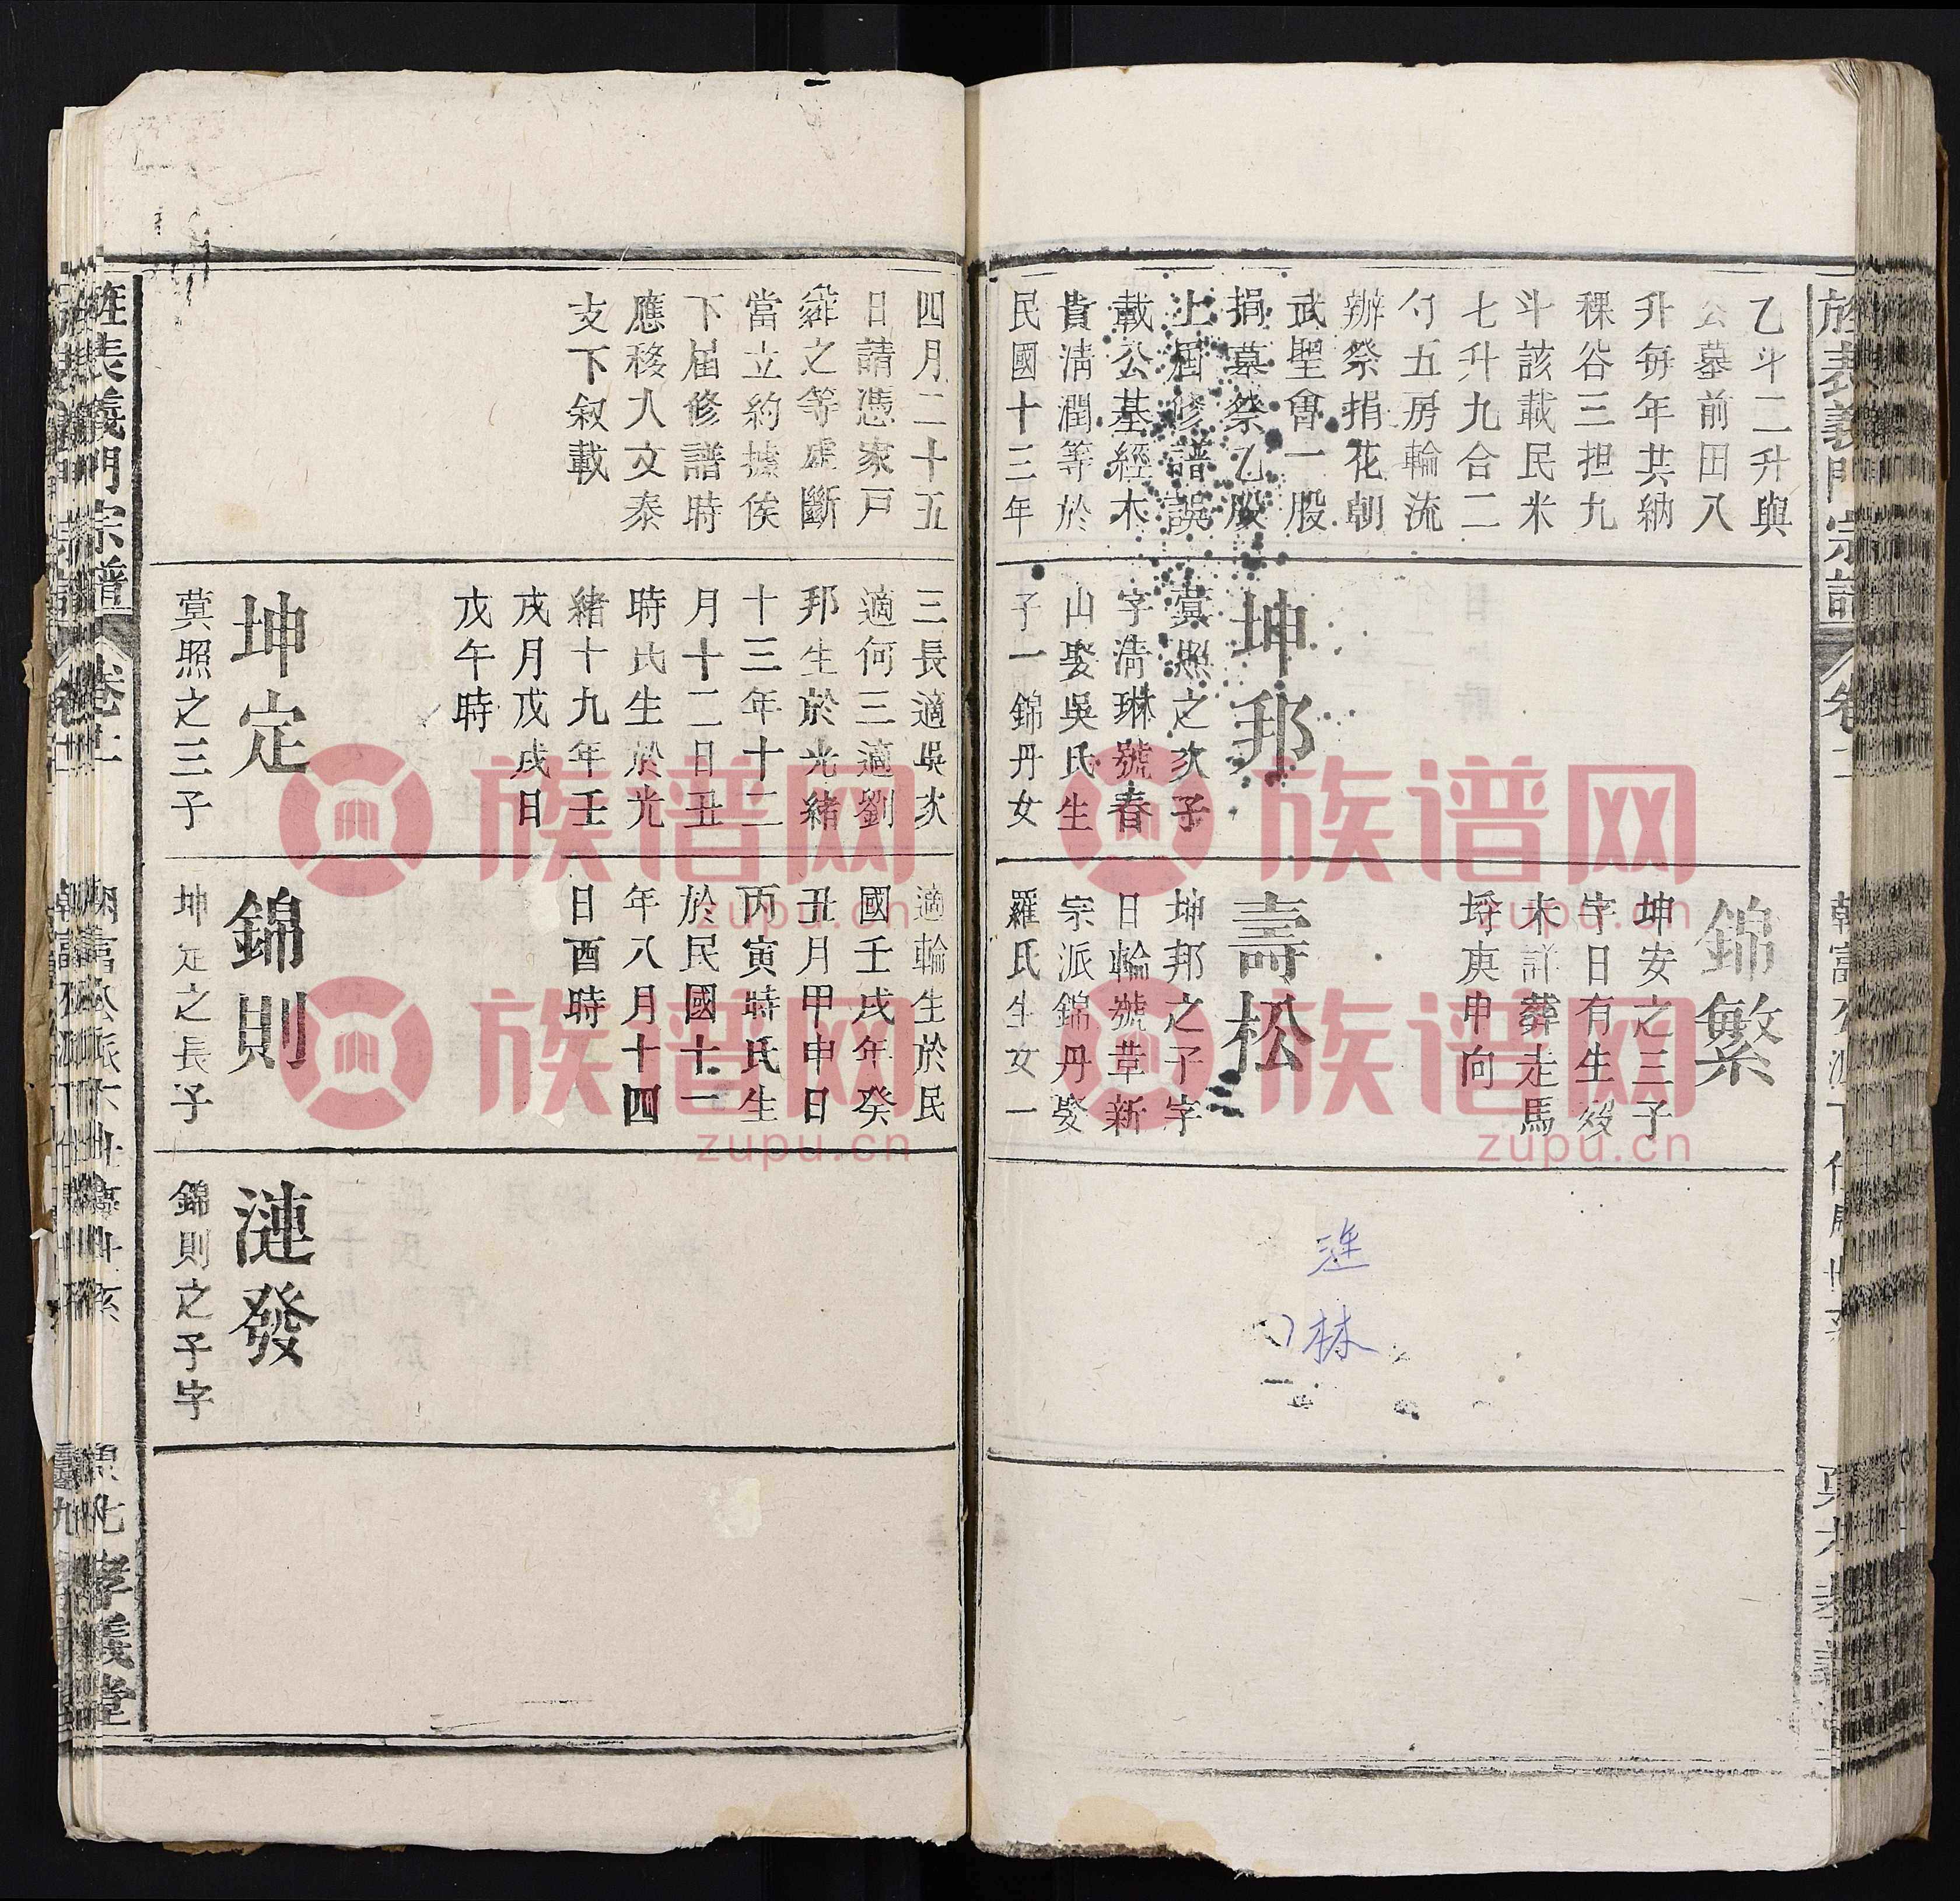 乙斗二升與
公墓前田八
升每年共納
稞谷三担九
斗該載民米
七升九合二
勺五房輪流
辦祭捐花朝
武聖會一股
捐墓祭乙股
上屆修譜誤
載公基經木
貴清潤等於
民國十三年
坤邦
蓂照之次子
字清琳號春
山娶吳氏生
子一錦丹女
錦繁
坤安之三子
字日有生歿
未詳葬走馬
埁庚申向
壽松
坤邦之子字
日輪號葦新
宗派錦丹娶
羅氏生女一
涟
林
四月二十五
日請憑家戸
粦之等處斷
當立約據俟
下届修譜時
應移入文泰
支下叙載
三長適吳次
適何三適劉
邦生於光緒
十三年十二
月十二日丑
時氏生於光
緒十九年壬
戌月戊戌日
戊午時
坤定
蓂照之三子
適輪生於民
國壬戌年癸
丑月甲申日
丙寅時氏生
於民國十一
年八月十四
日酉時
錦則
坤定之長子
漣發
錦則之子字
旌表義門宗譜
孝義堂
族谱网
zupu.cn
族谱网
zupu.cn
族谱网
zupu.cn
族谱网
zupu.cn